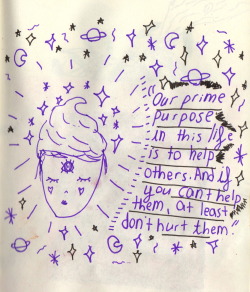 "Our prime
purpose
in this life
is to help
others. And if
you can't help
them, at least
don't hurt them."